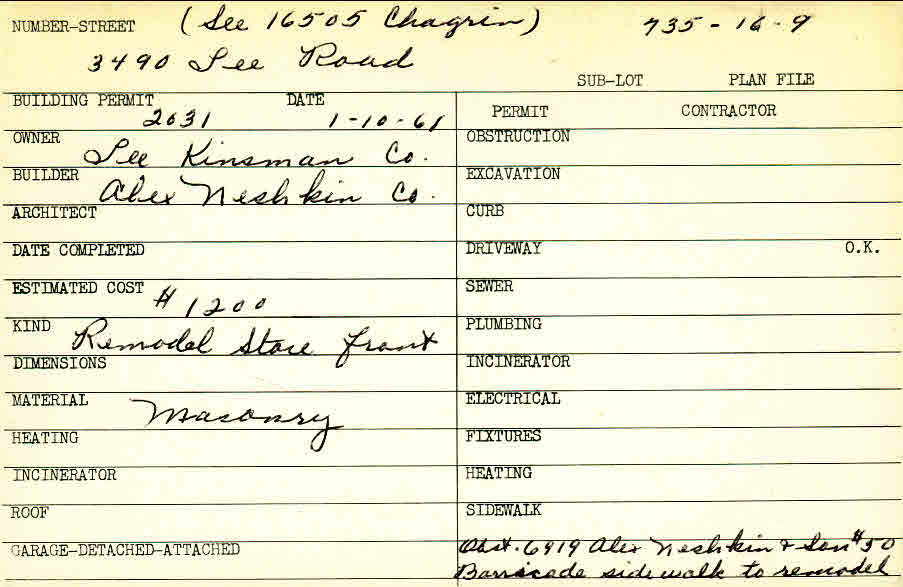 NUMBER-STREET (See 16505 Chagrin) 735-16-9
3490 Lee Road
SUB-LOT PLAN FILE
BUILDING PERMIT DATE PERMIT CONTRACTOR
2031 1-10-61
OWNER Lee Kinsman Co. OBSTRUCTION
BUILDER Alex Neshkin Co. EXCAVATION
ARCHITECT CURB
DATE COMPLETED DRIVEWAY O.K.
ESTIMATED COST # 1200 SEWER
KIND Remodel Store front PLUMBING
DIMENSIONS INCINERATOR
MATERIAL Masonry ELECTRICAL
HEATING FIXTURES
INCINERATOR HEATING
ROOF SIDEWALK
GARAGE-DETACHED-ATTACHED Obst. 6919 Alex Neshkin & Son #50
Barricade sidewalk to remodel